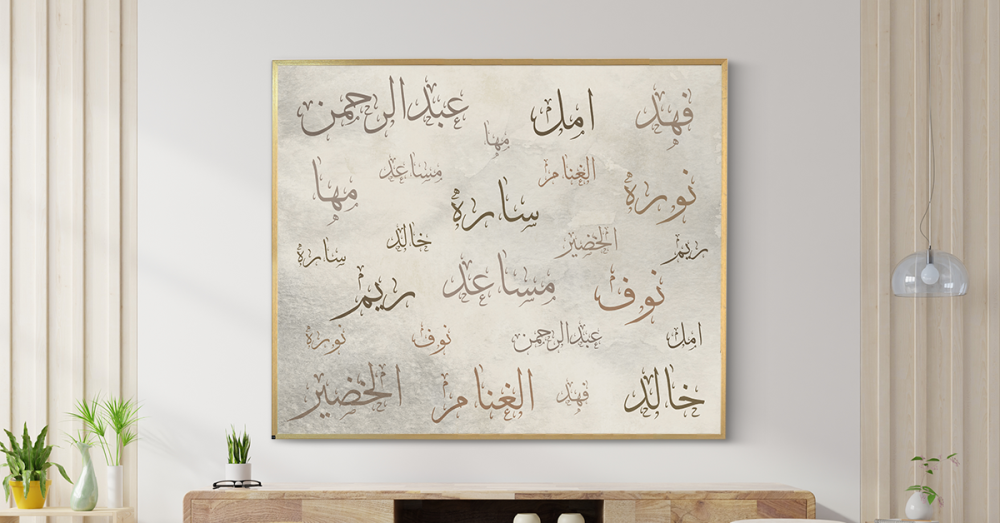 فهد امل عبدالرحمن
مها
الغنام مساعد
نورة سارة مها
ريم الخضير خالد سارة
نوف مساعد ريم
امل عبدالرحمن نوف نورة
خالد فهد الغنام الخضير